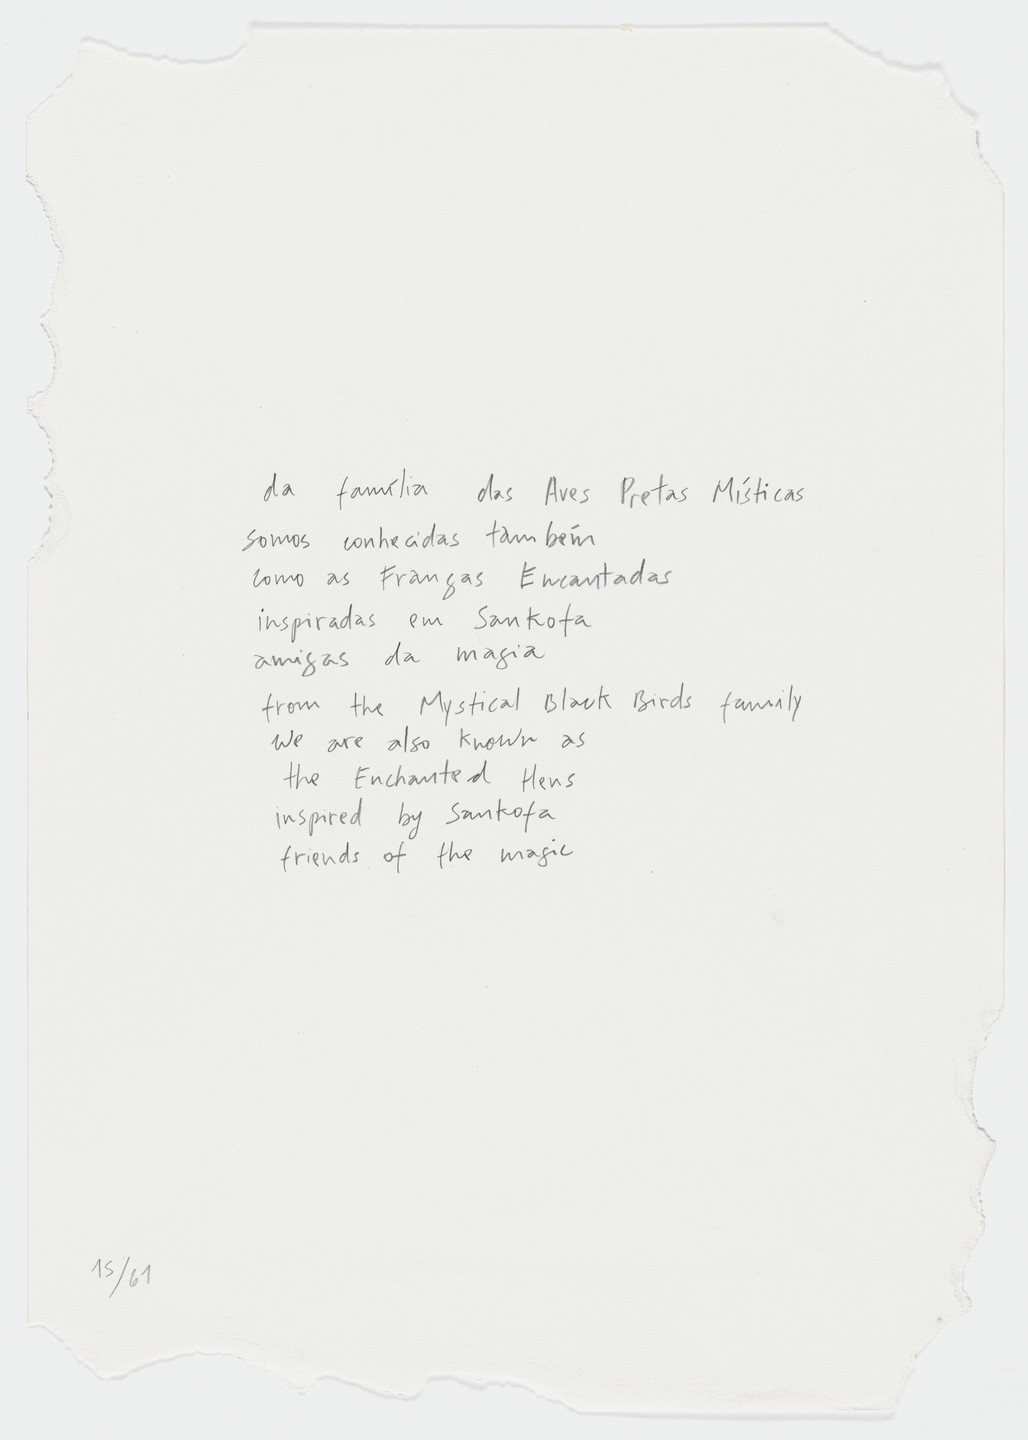 da família das Aves Pretas Místicas
somos conhecidas também
como as Frangas Encantadas
inspiradas em Sankofa
amigas da magia
from the Mystical Black Birds family
we are also known as
the Enchanted Hens
inspired by Sankofa
friends of the magic
15/61